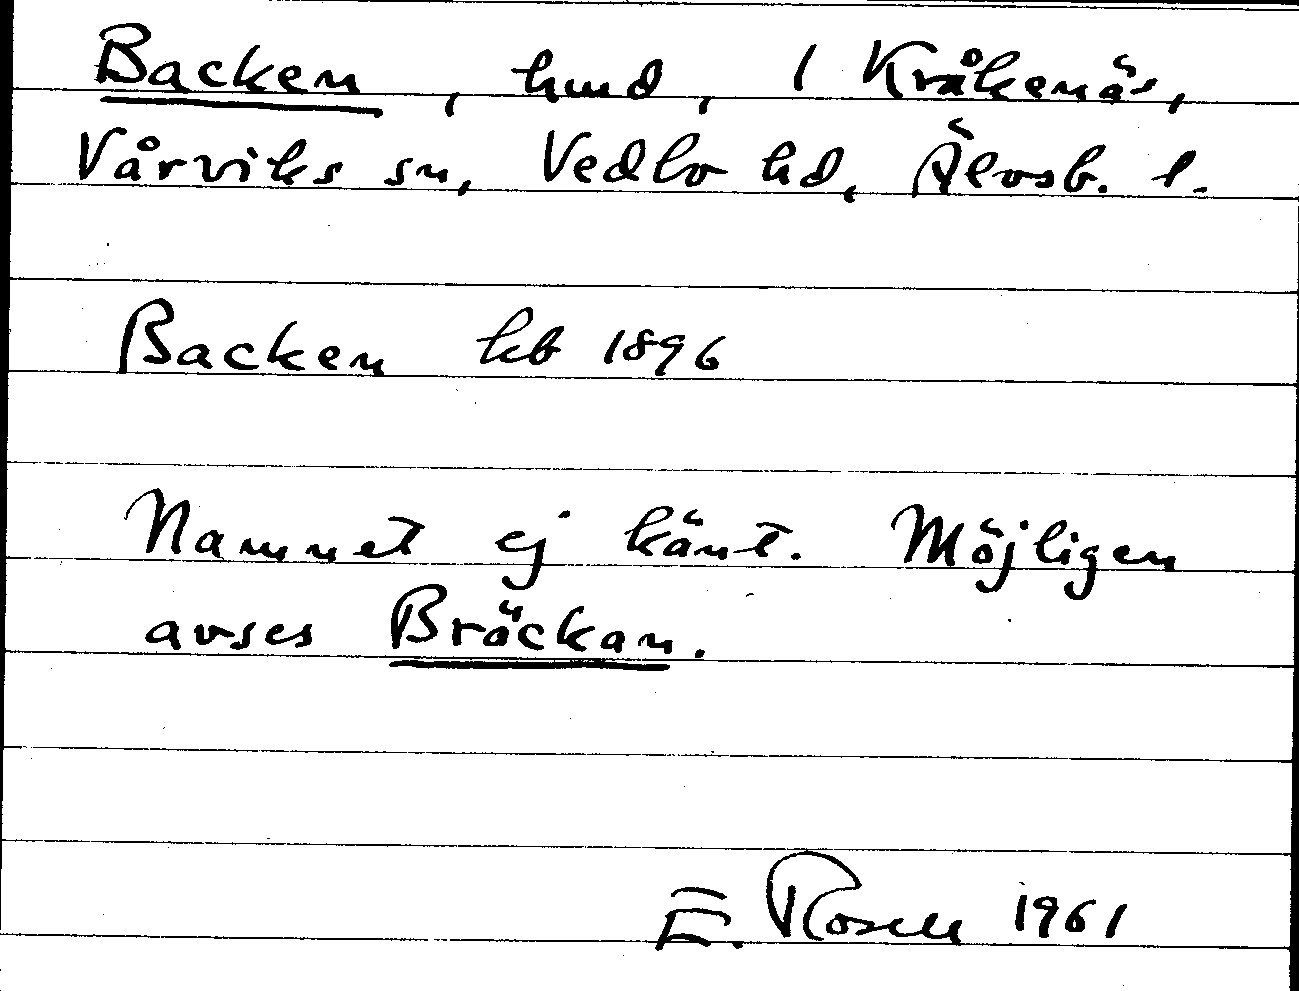 Backen, hmd, 1 Kråkenäs,
Vårviks sn, Vedbo hd, Älvsb. l.
Backen kb 1896
Namnet ej känt. Möjligen
avses Bräckan.
E. Rosell 1961